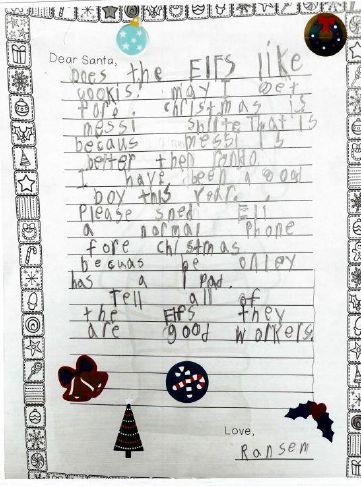 Dear Santa,
Does the Elfs like
cookis. may I Get
fore. christmas is
messi shirte That is
becaus messi is
better then Rondo.
I have been a good
boy this year.
Please sned Eli
a normal phone
fore christmas
becuas he onley
has a I Pad.
Tell all of
the Elfs they
are good workers.
Love,
Ransem